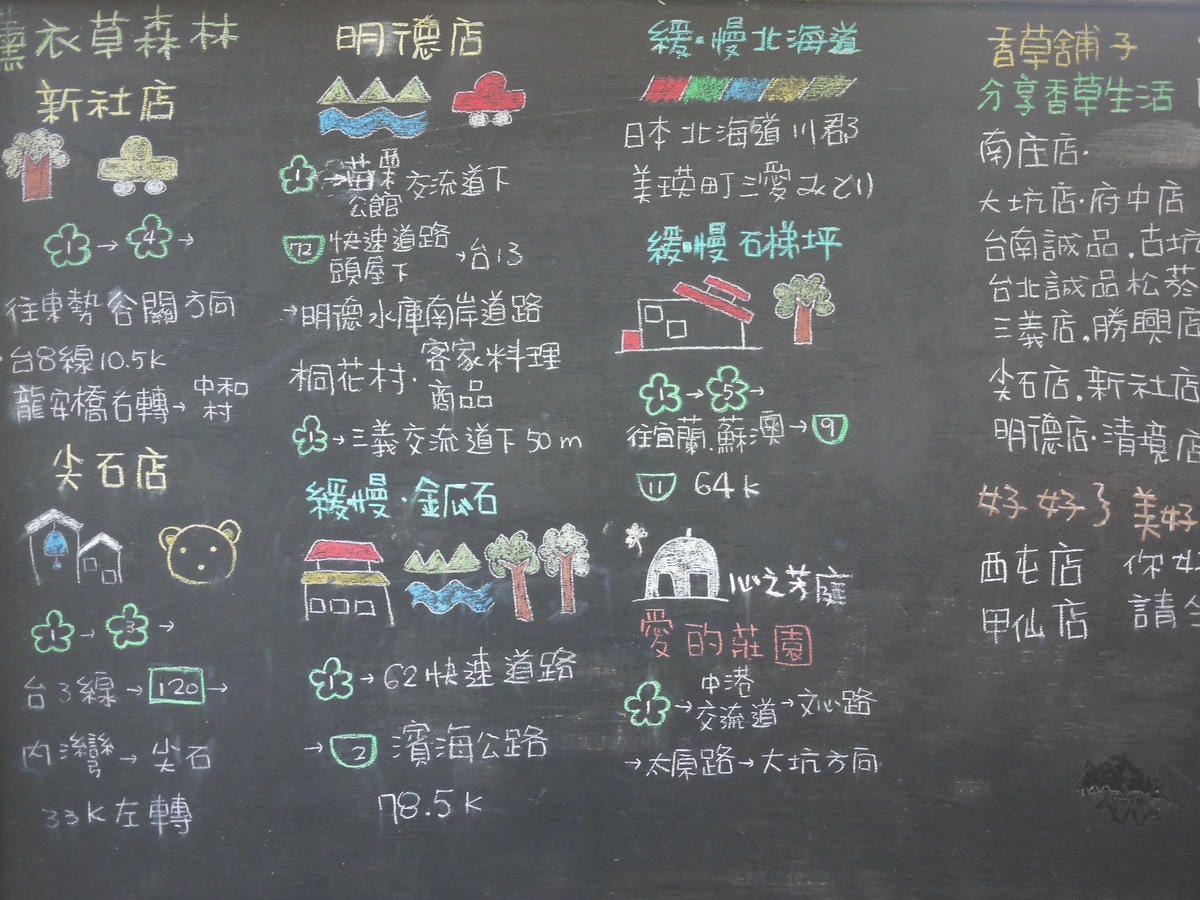 薰衣草森林
新社店
1 → 4 →
往東勢谷關方向
台8線10.5K
龍安橋右轉→中和村
尖石店
1 → 3 →
台3線→120→
內灣→尖石
33K左轉
明德店
1→苗栗交流道下
公館
72 快速道路
頭屋下
→台13
→明德水庫南岸道路
桐花村·客家料理
商品
1→三義交流道下50m
緩慢·金瓜石
1→62快速道路
→2 濱海公路
78.5K
緩·慢北海道
日本北海道川郡
美瑛町三愛みどり
緩·慢石梯坪
1→5→
往宜蘭.蘇澳→9
11 64K
心之芳庭
愛的莊園
1→中港
交流道→文心路
→太原路→大坑方向
香草舖子
分享香草生活
南庄店·
大坑店·府中店
台南誠品.古坑
台北誠品松菸
三義店.勝興店
尖石店.新社店
明德店·清境店
好好 美好
西屯店 你好
甲仙店 請